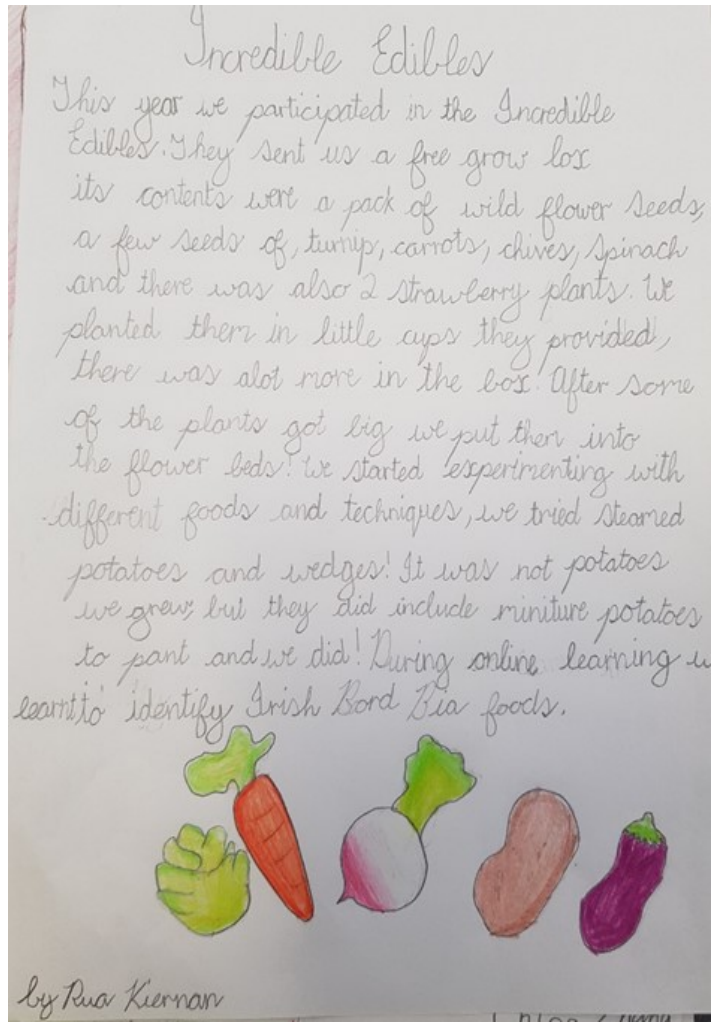 Incredible Edibles
This year we participated in the Incredible
Edibles. They sent us a free grow box
its contents were a pack of wild flower seeds,
a few seeds of, turnip, carrots, chives, spinach
and there was also 2 strawberry plants. We
planted them in little cups they provided,
there was alot more in the box! After some
of the plants got big we put them into
the flower beds! We started experimenting with
different foods and techniques, we tried steamed
potatoes and wedges! It was not potatoes
we grew, but they did include miniture potatoes
to pant and we did! During online learning
learnt to identify Irish Bord Bia foods.
by Rua Kiernan